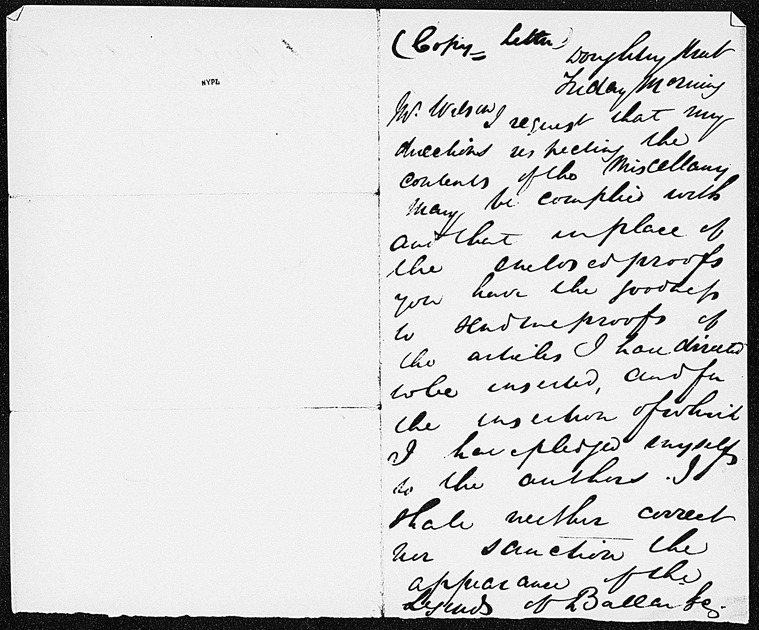 NYPL
(Copy Letter)
Doughty Street
Friday Morning
Mr. Wilson, I request that my
directions respecting the
contents of the Miscellany
may be complied with
and that in place of
the enclosed proofs
you have the goodness
to send me proofs of
the articles I have directed
to be inserted, and for
the insertion of which
I have pledged myself
to the authors. I
shall neither correct
nor sanction the
appearance of the
Legends of Ballar &c